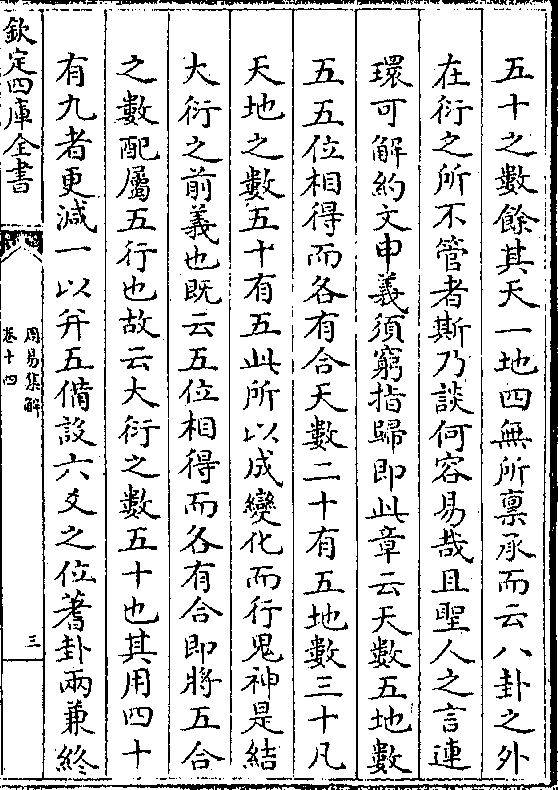 五十之數餘其天一地四無所稟承而云八卦之外
在衍之所不管者斯乃談何容易哉且聖人之言連
環可解約文申義須窮指歸即此章云天數五地數
五五位相得而各有合天數二十有五地數三十凡
天地之數五十有五此所以成變化而行鬼神是結
大衍之前義也既云五位相得而各有合即將五合
之數配屬五行也故云大衍之數五十也其用四十
有九者更減一以并五備設六爻之位蓍卦兩兼終
欽定四庫全書
周易集解
卷十四
三